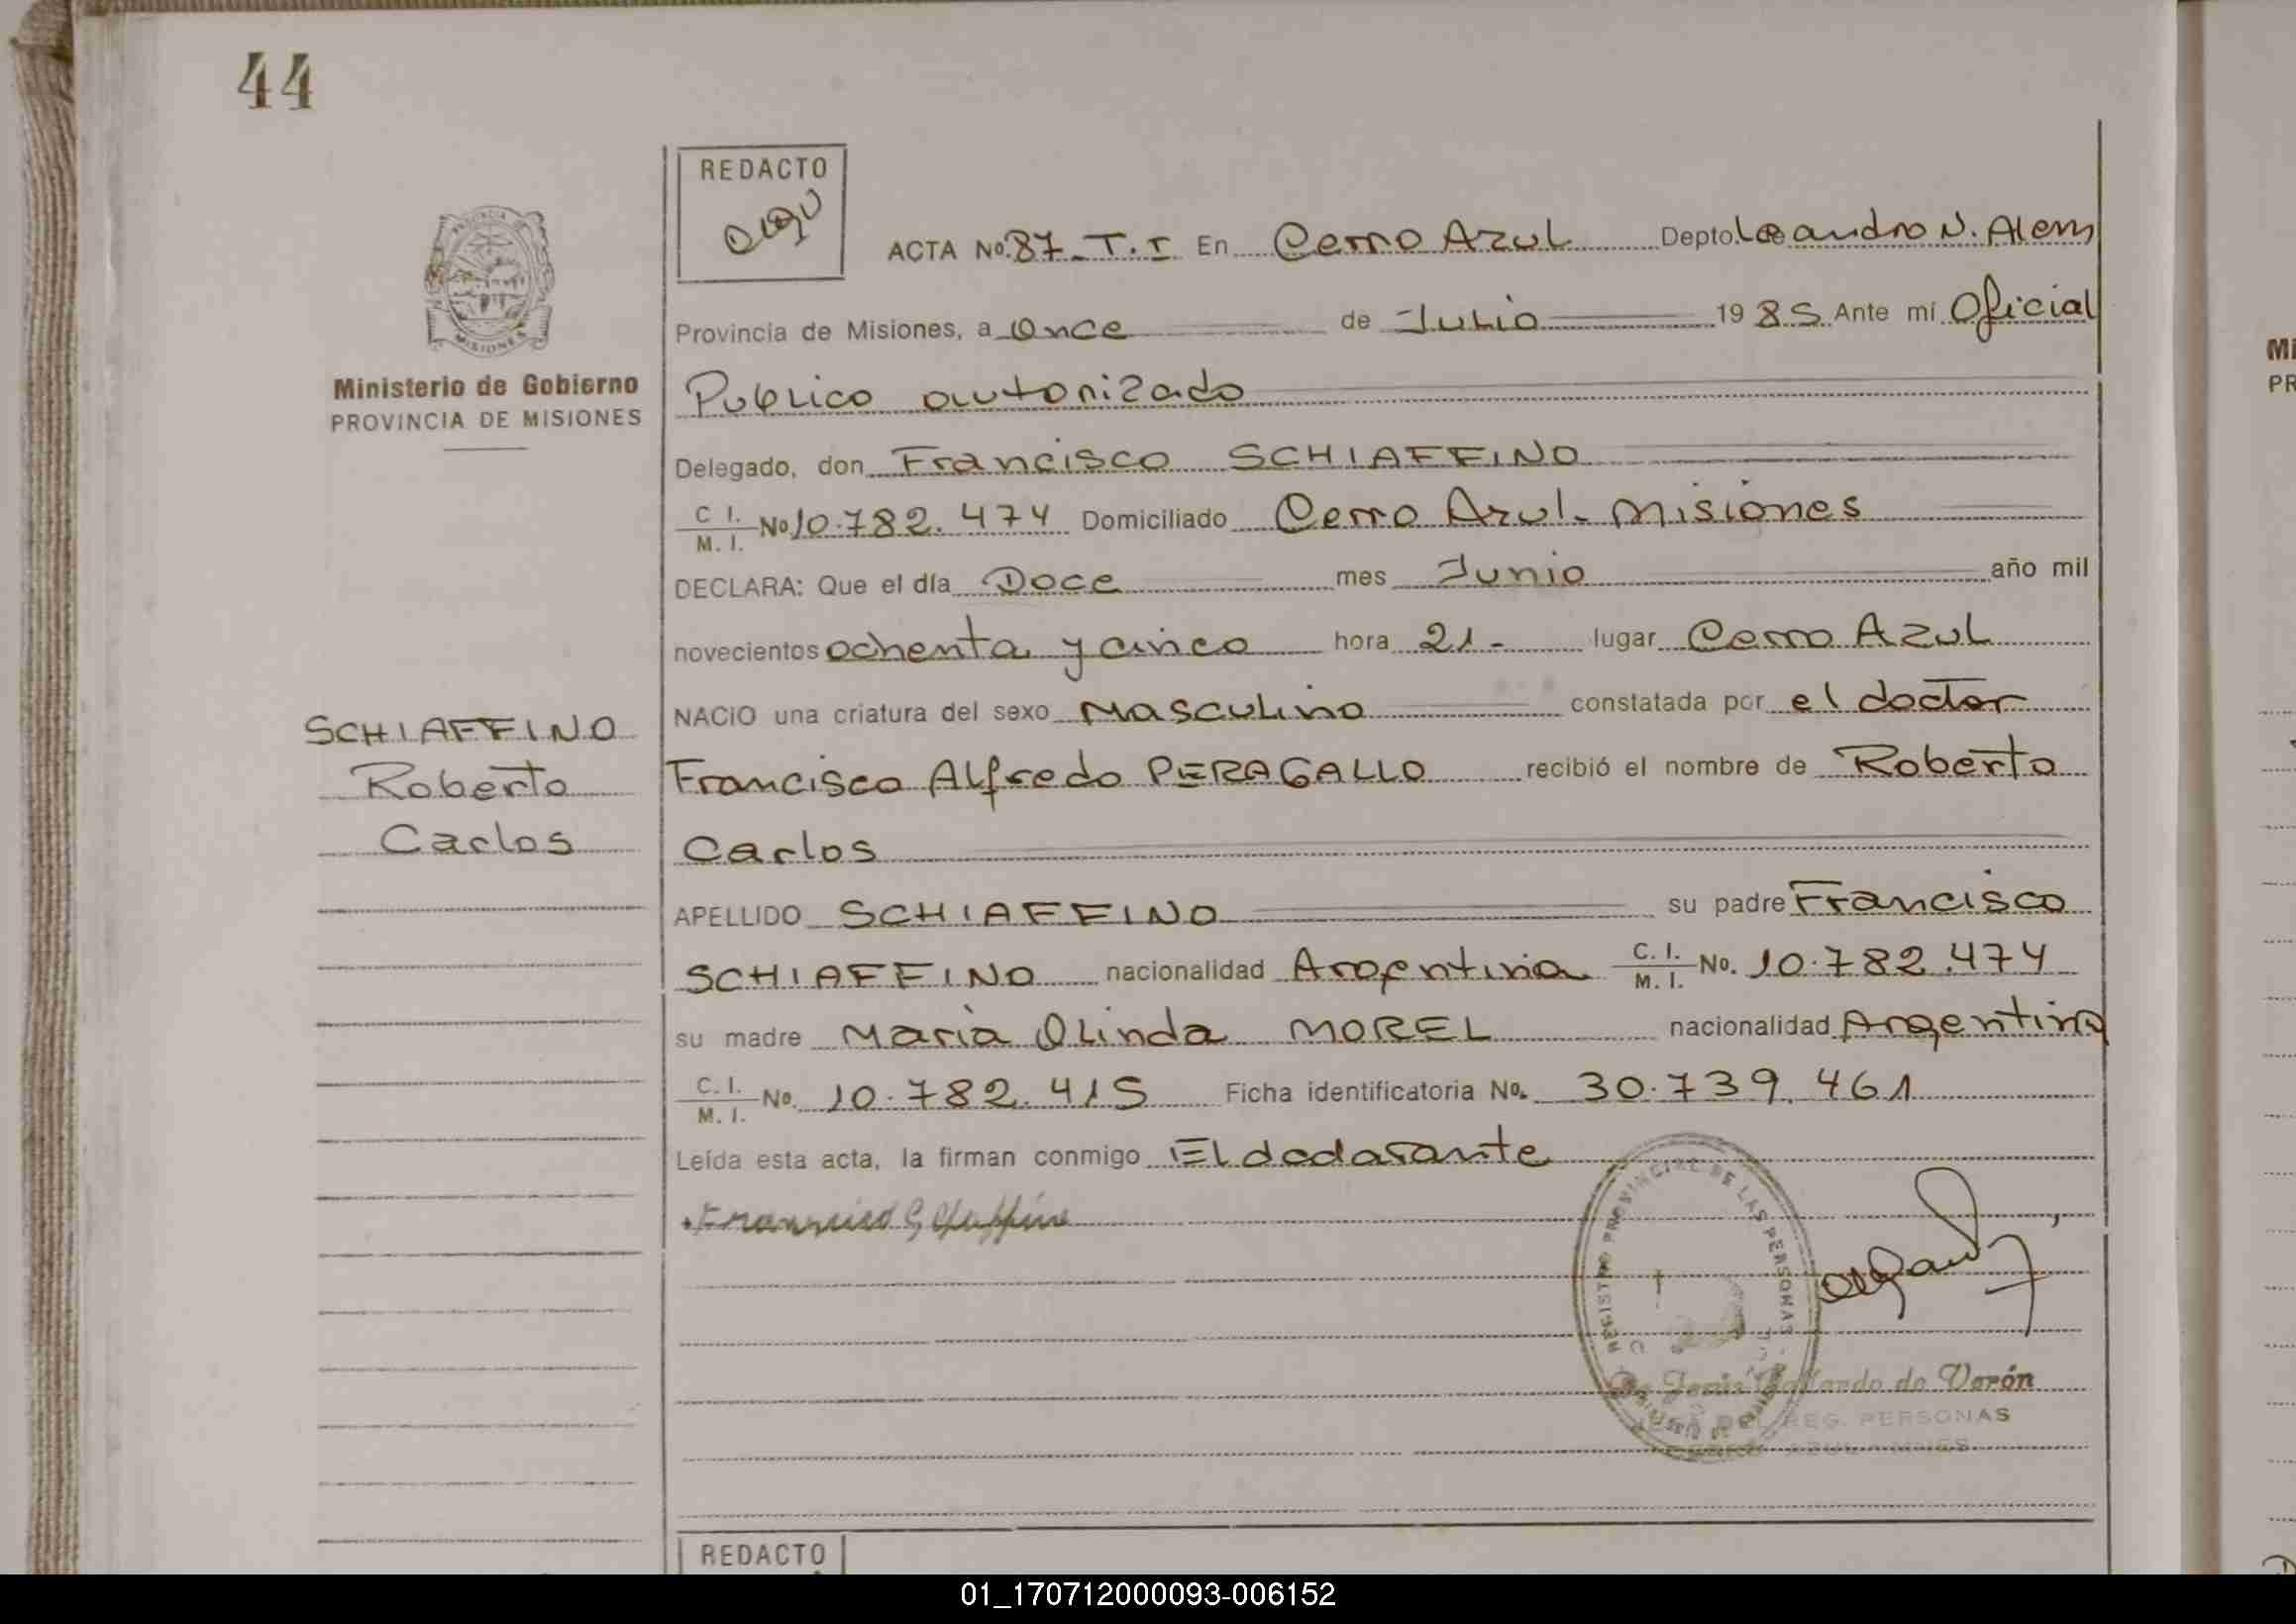 44
REDACTO
PROVINCIA DE
MISIONES
Ministerio de Gobierno
PROVINCIA DE MISIONES
ACTA No. 87 - T. I En Cerro Azul Depto. Leandro N. Alem
Provincia de Misiones, a once de Julio 1985 Ante mí Oficial
Publico autorizado
Delegado, don Francisco SCHIAFFINO
C I. / M. I. No 10.782.474 Domiciliado Cerro Azul - Misiones
DECLARA: Que el día Doce mes Junio año mil
novecientos ochenta y cinco hora 21- lugar Cerro Azul
NACIO una criatura del sexo Masculino constatada por el doctor
Francisco Alfredo PERAGALLO recibió el nombre de Roberto
Carlos
APELLIDO SCHIAFFINO su padre Francisco
SCHIAFFINO nacionalidad Argentina C. I. / M. I. No. 10.782.474
su madre Maria Olinda MOREL nacionalidad Argentina
C. I. / M. I. No. 10.782.415 Ficha identificatoria No. 30.739.461
Leída esta acta, la firman conmigo El declarante
SCHIAFFINO
Roberto
Carlos
REGISTRO PROVINCIAL DE LAS PERSONAS
de Verón
REG. PERSONAS
REDACTO
Mi
PR
01_170712000093-006152